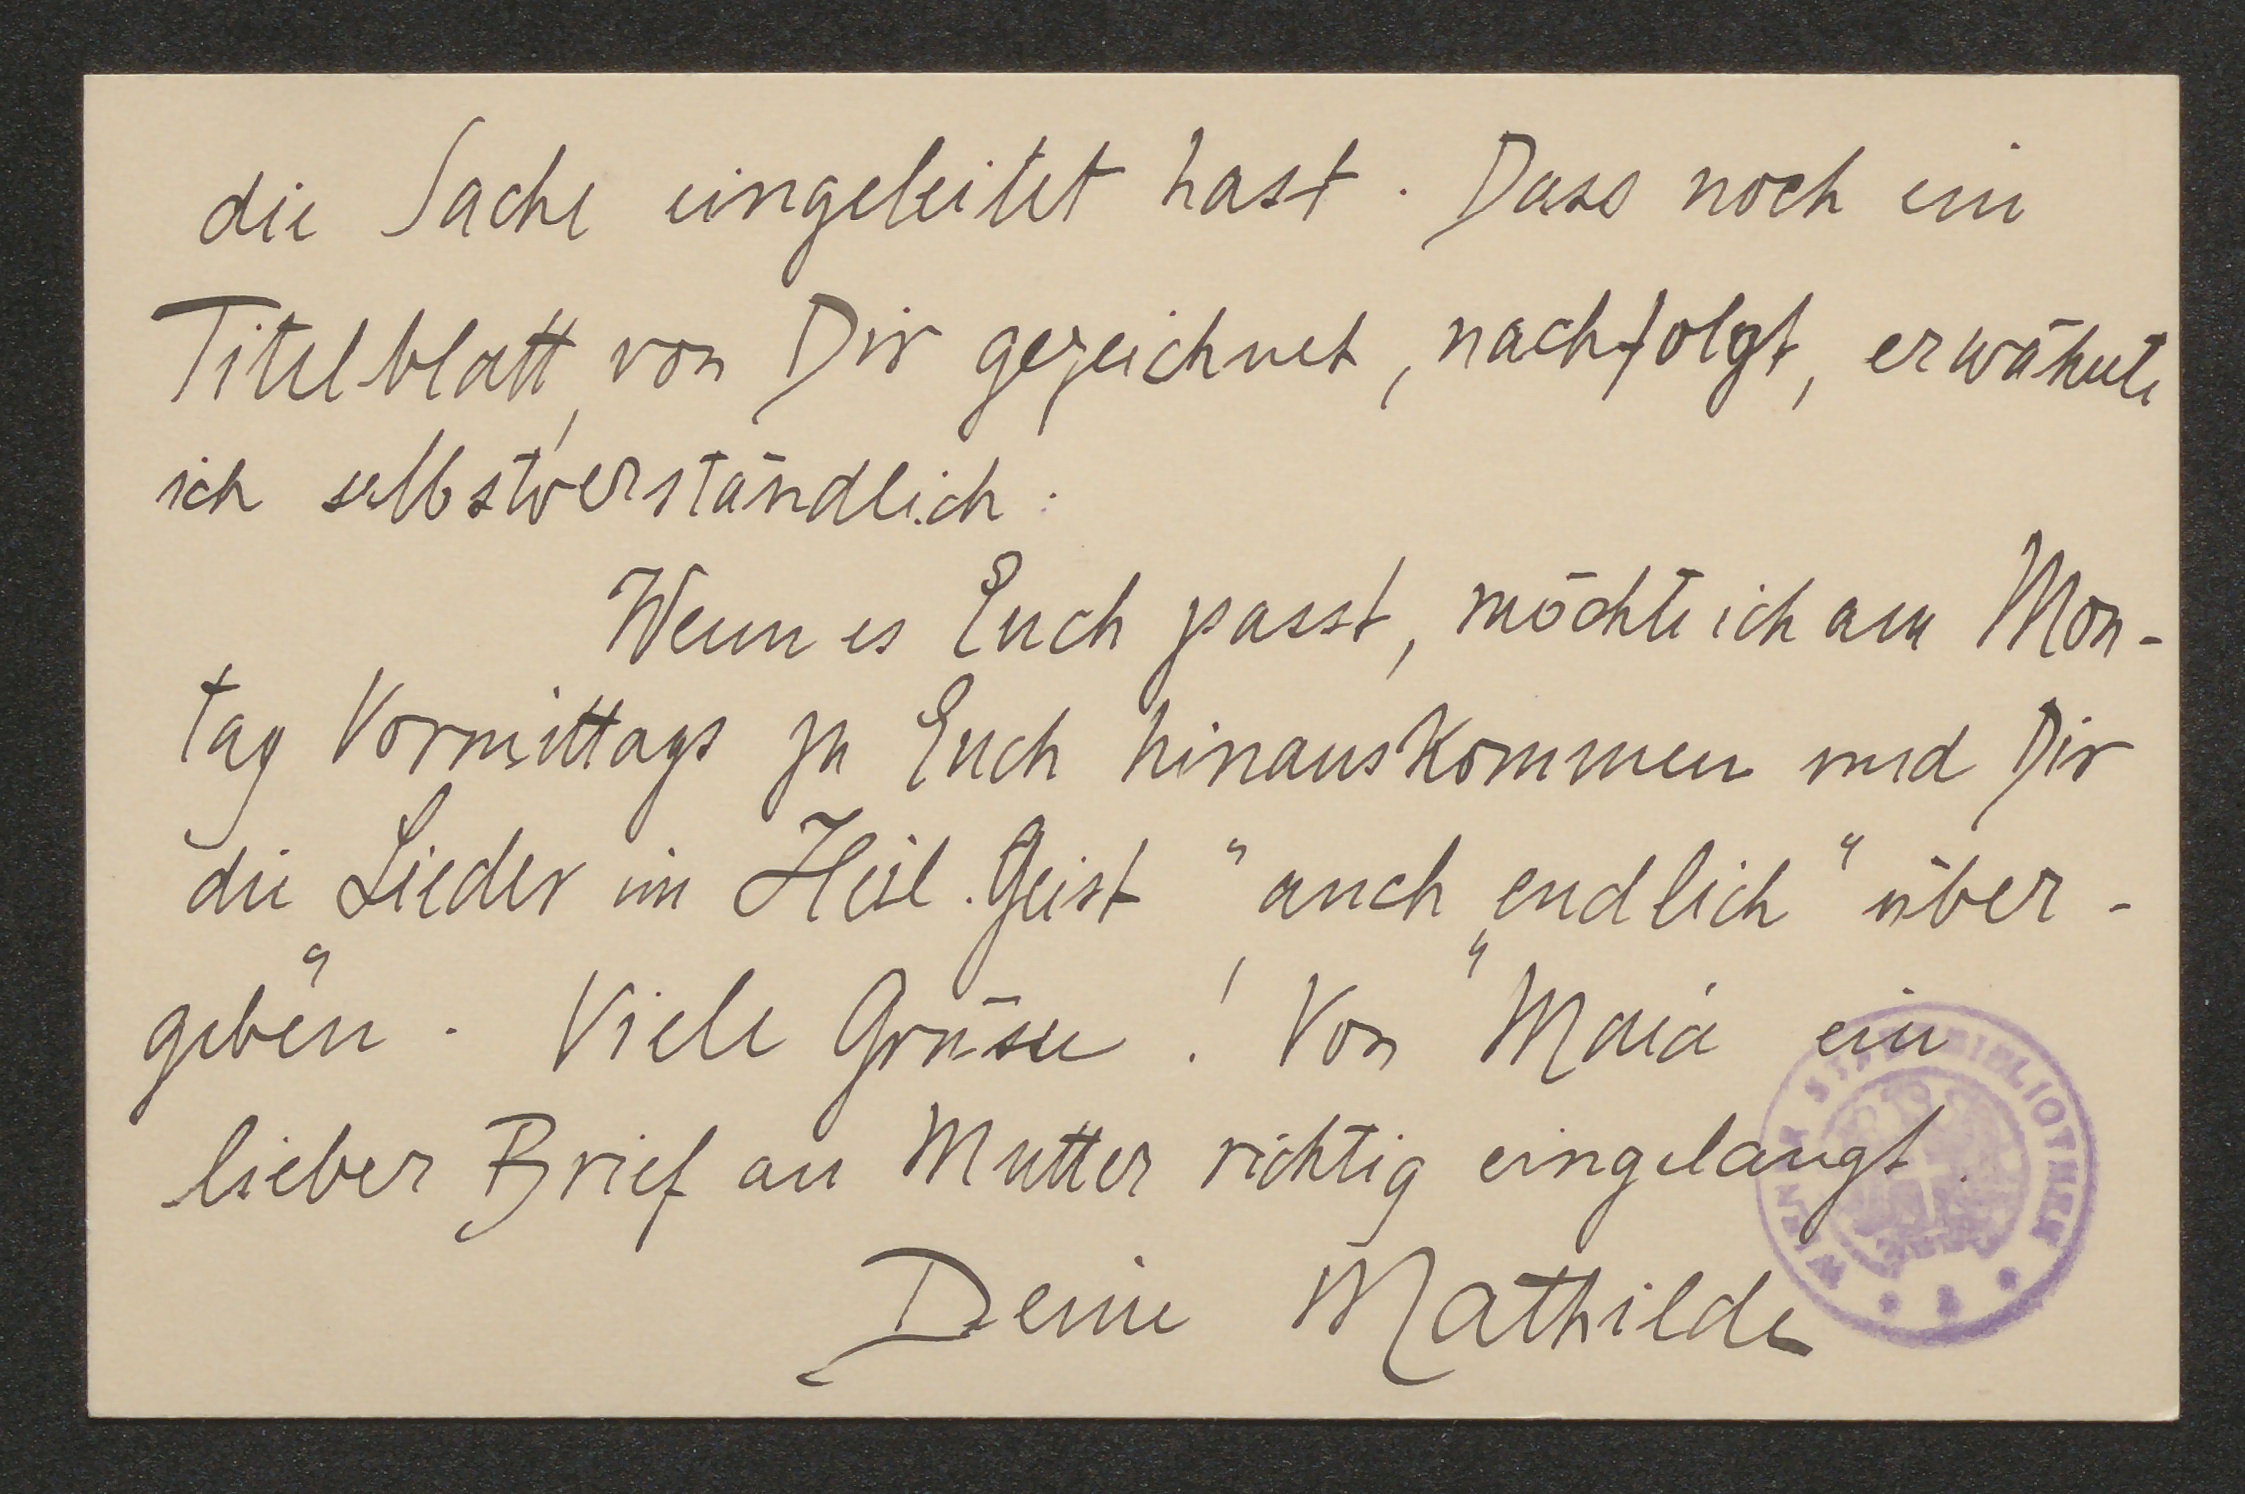 die Sache eingeleitet hast. Dass noch ein
Titelblatt, von Dir gezeichnet, nachfolgt, erwähnte
ich selbstverständlich.
Wenn es Euch passt, möchte ich am Mon-
tag Vormittags zu Euch hinauskommen und Dir
die Lieder im Heil. Geist "auch endlich" über-
geben. Viele Grüsse! Von "Maia" ein
lieber Brief an Mutter richtig eingelangt.
Deine Mathilde
WIENER STADTBIBLIOTHEK